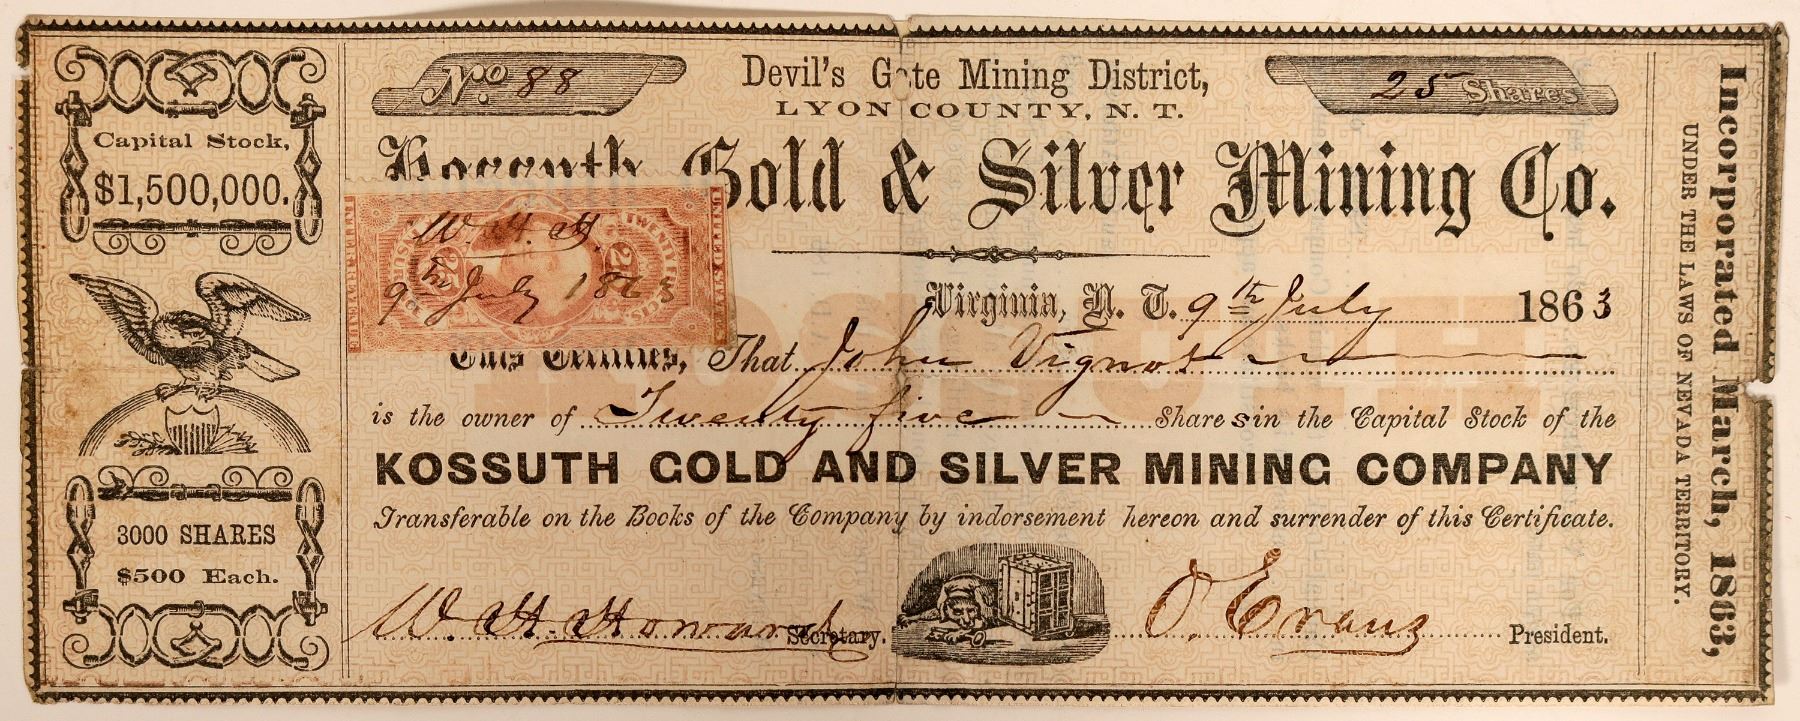 Capital Stock,
$1,500,000.
3000 SHARES
$500 Each.
No. 88
Devil's Gate Mining District,
LYON COUNTY, N. T.
25 Shares
Kossuth Gold & Silver Mining Co.
W. H. H.
9th July 1863
25
25
Virginia, N. T. 9th July 1863
This Certifies, That John Vignot
is the owner of Twenty five Shares in the Capital Stock of the
KOSSUTH
KOSSUTH GOLD AND SILVER MINING COMPANY
Transferable on the Books of the Company by indorsement hereon and surrender of this Certificate.
W. H. Howard Secretary.
O Evans President.
Incorporated March, 1863,
UNDER THE LAWS OF NEVADA TERRITORY.